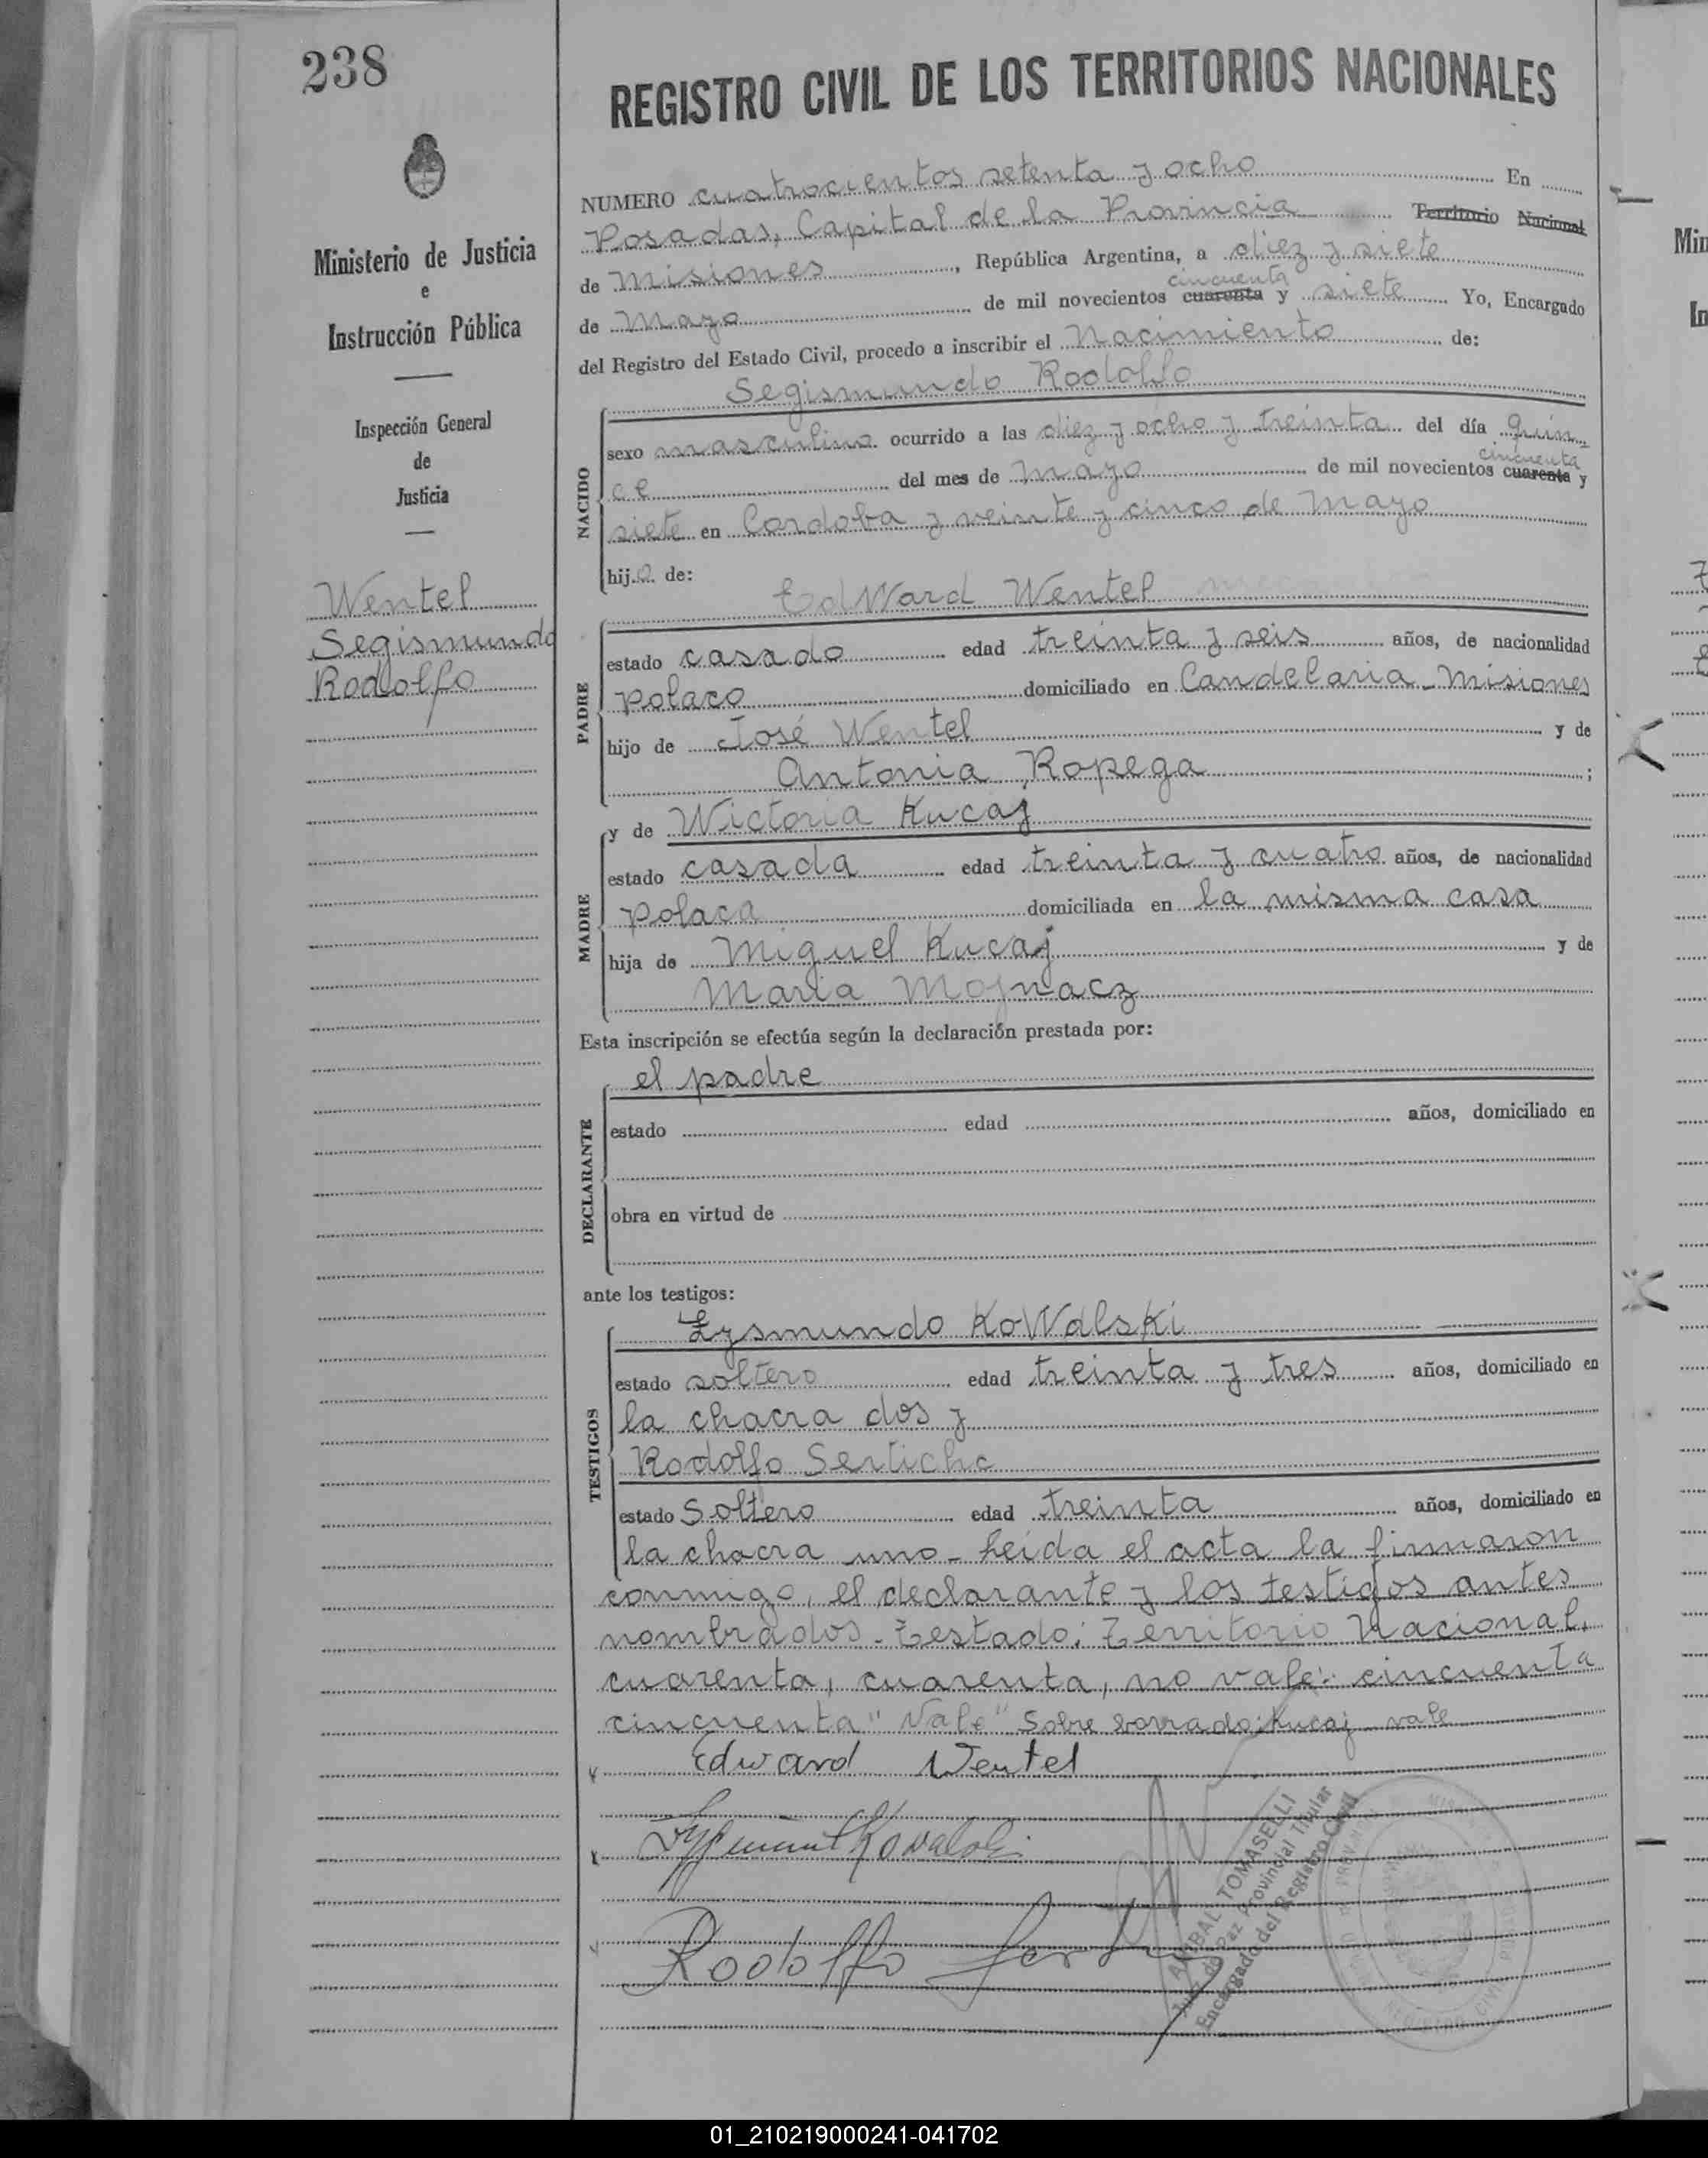 238
REGISTRO CIVIL DE LOS TERRITORIOS NACIONALES
Ministerio de Justicia
e
Instrucción Pública
Inspección General
de
Justicia
Wentel
Segismundo
Rodolfo
NUMERO cuatrocientos setenta y ocho En
Posadas, Capital de la Provincia Territorio Nacional
de Misiones, República Argentina, a diez y siete
cincuenta
de Mayo de mil novecientos cuarenta y siete Yo, Encargado
del Registro del Estado Civil, procedo a inscribir el Nacimiento de:
Segismundo Rodolfo
NACIDO
sexo masculino ocurrido a las diez y ocho y treinta del día Quin
cincuenta
ce del mes de Mayo de mil novecientos cuarenta y
siete en Cordoba y veinte y cinco de Mayo
hijo de:
EdWard Wentel
PADRE
estado casado edad treinta y seis años, de nacionalidad
polaco domiciliado en Candelaria - Misiones
hijo de José Wentel y de
Antonia Ropega;
MADRE
y de Wictoria Kucaj
estado casada edad treinta y cuatro años, de nacionalidad
polaca domiciliada en la misma casa
hija de Miguel Kucaj y de
Maria Mojnacz
Esta inscripción se efectúa según la declaración prestada por:
DECLARANTE
el padre
estado edad años, domiciliado en
obra en virtud de
ante los testigos:
TESTIGOS
Zysmundo KoWalski
estado soltero edad treinta y tres años, domiciliado en
la chacra dos y
Rodolfo
estado Soltero edad treinta años, domiciliado en
la chacra uno - Leida el acta la firmaron
conmigo, el declarante y los testigos antes
nombrados - Testado: Territorio Nacional,
cuarenta, cuarenta, no vale: cincuenta
cincuenta "Vale" Sobre borrado: Kucaj - vale
Edward Wentel
Rodolfo
ANIBAL TOMASELLI
Juez de Paz Provincial Titular
Encargado del Registro Civil
01_210219000241-041702